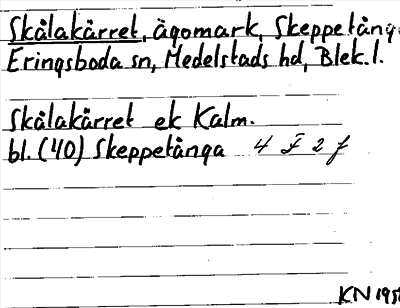 Skålakärret, ägomark, Skeppetånga
Eringsboda sn, Medelstads hd, Blek.l.
Skålakärret ek Kalm.
bl. (40) Skeppetånga 4 F 2 f
KN 195